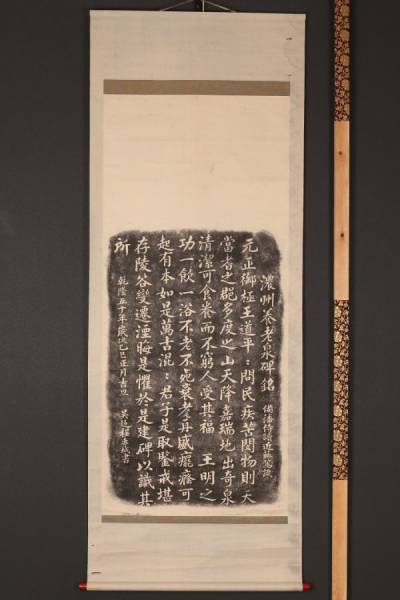 濃州养老泉碑銘 備藩侍讀近藤篤譔
元正御極王道平:問民疾苦閔物則天
當耆之郡多度之山天降嘉瑞地出奇泉
清潔可食养而不窮人受其福 王明之
功一飲一浴不老不死衰老 癃癈可
起有本如是萬古混:君子是取鑒戒堪
存陵谷變遷湮晦是懼於是建碑以識其
所 乾隆五十年歲次乙巳正月吉旦 吳趨程赤城書